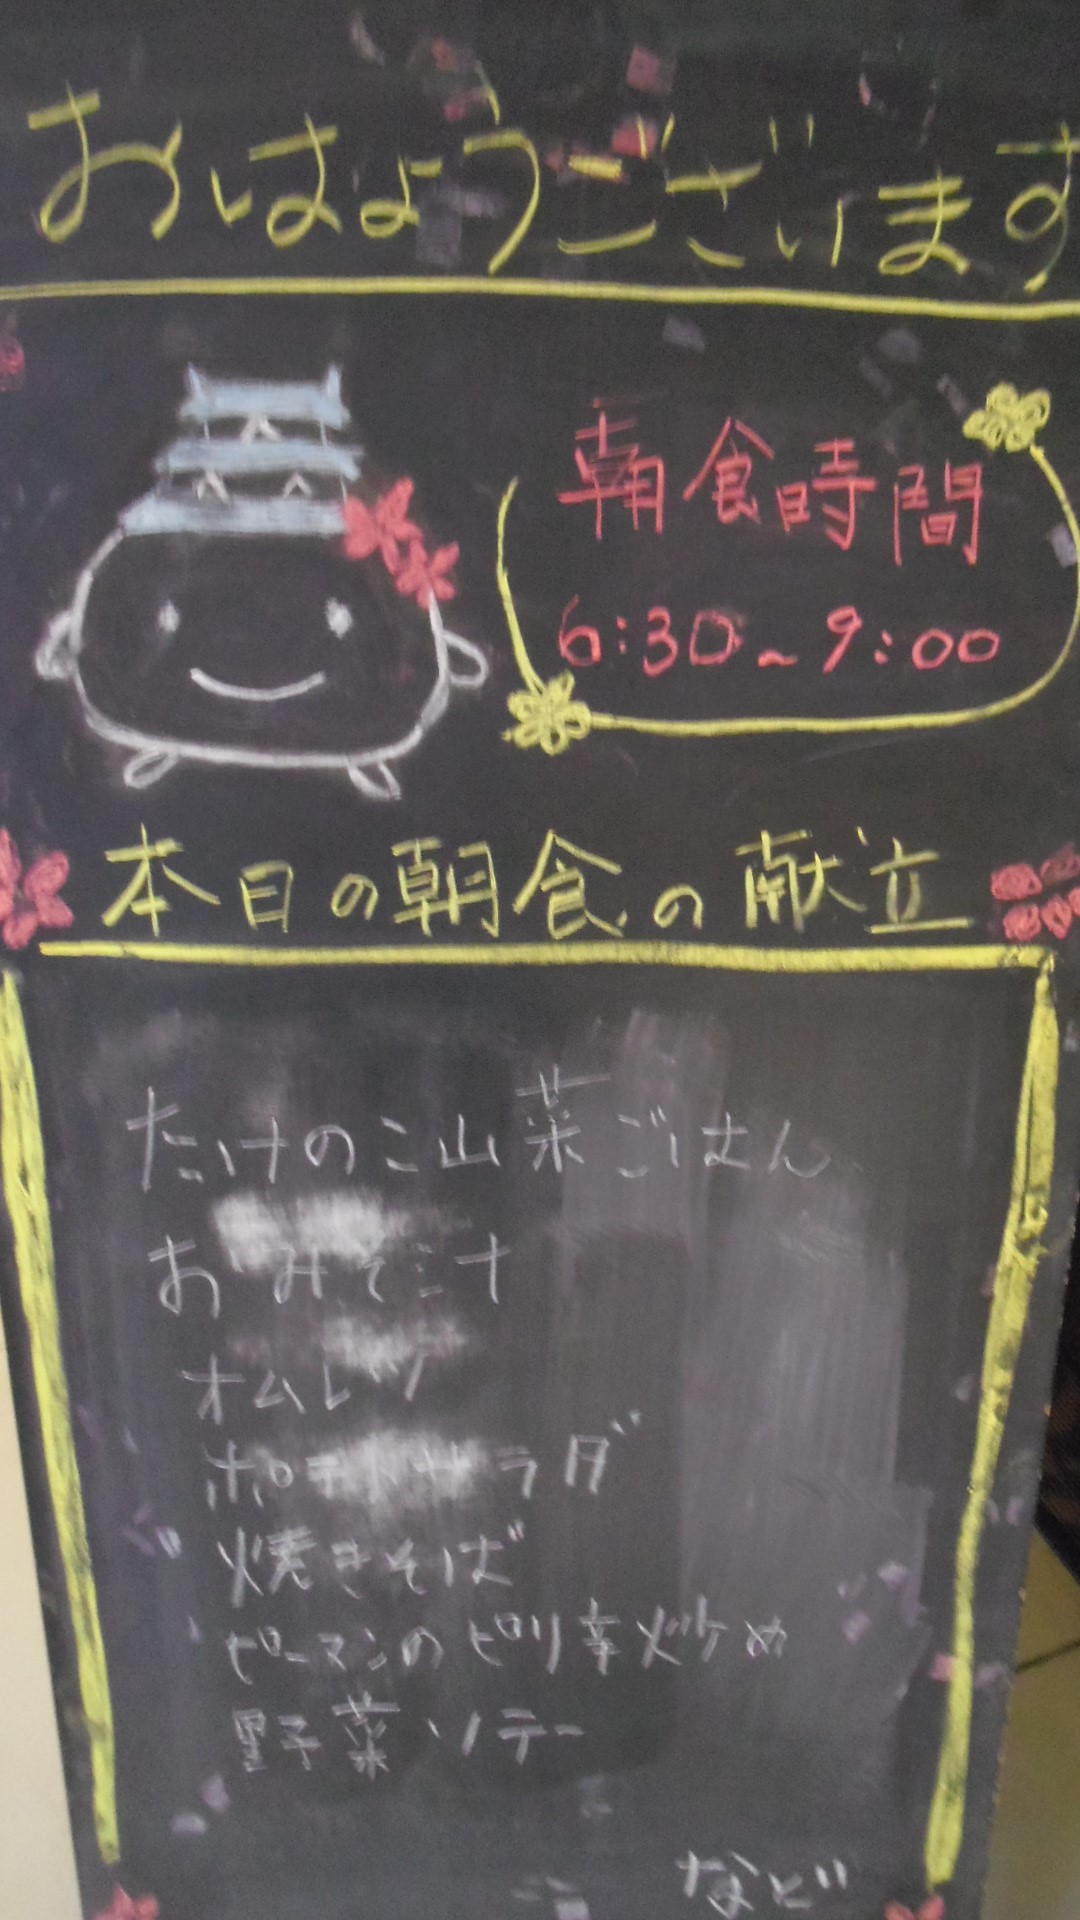 おはようございます
朝食時間
6:30~9:00
本日の朝食の献立
たけのこ山菜ごはん
おみそ汁
オムレツ
ポテトサラダ
焼きそば
ピーマンのピリ辛炒め
野菜ソテー
など